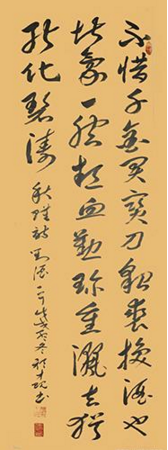 不惜千金買寶刀貂裘換酒也
堪豪一腔熱血勤珍重灑去猶
能化碧濤
秋瑾詩對酒